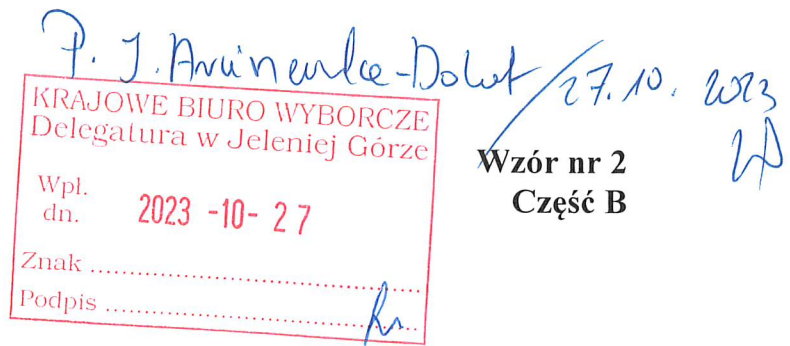 P. J. 27.10.2023
KRAJOWE BIURO WYBORCZE
Delegatura w Jeleniej Górze
Wpł.
dn. 2023 -10- 27
Znak ........................................
Podpis ........................................
Wzór nr 2
Część B